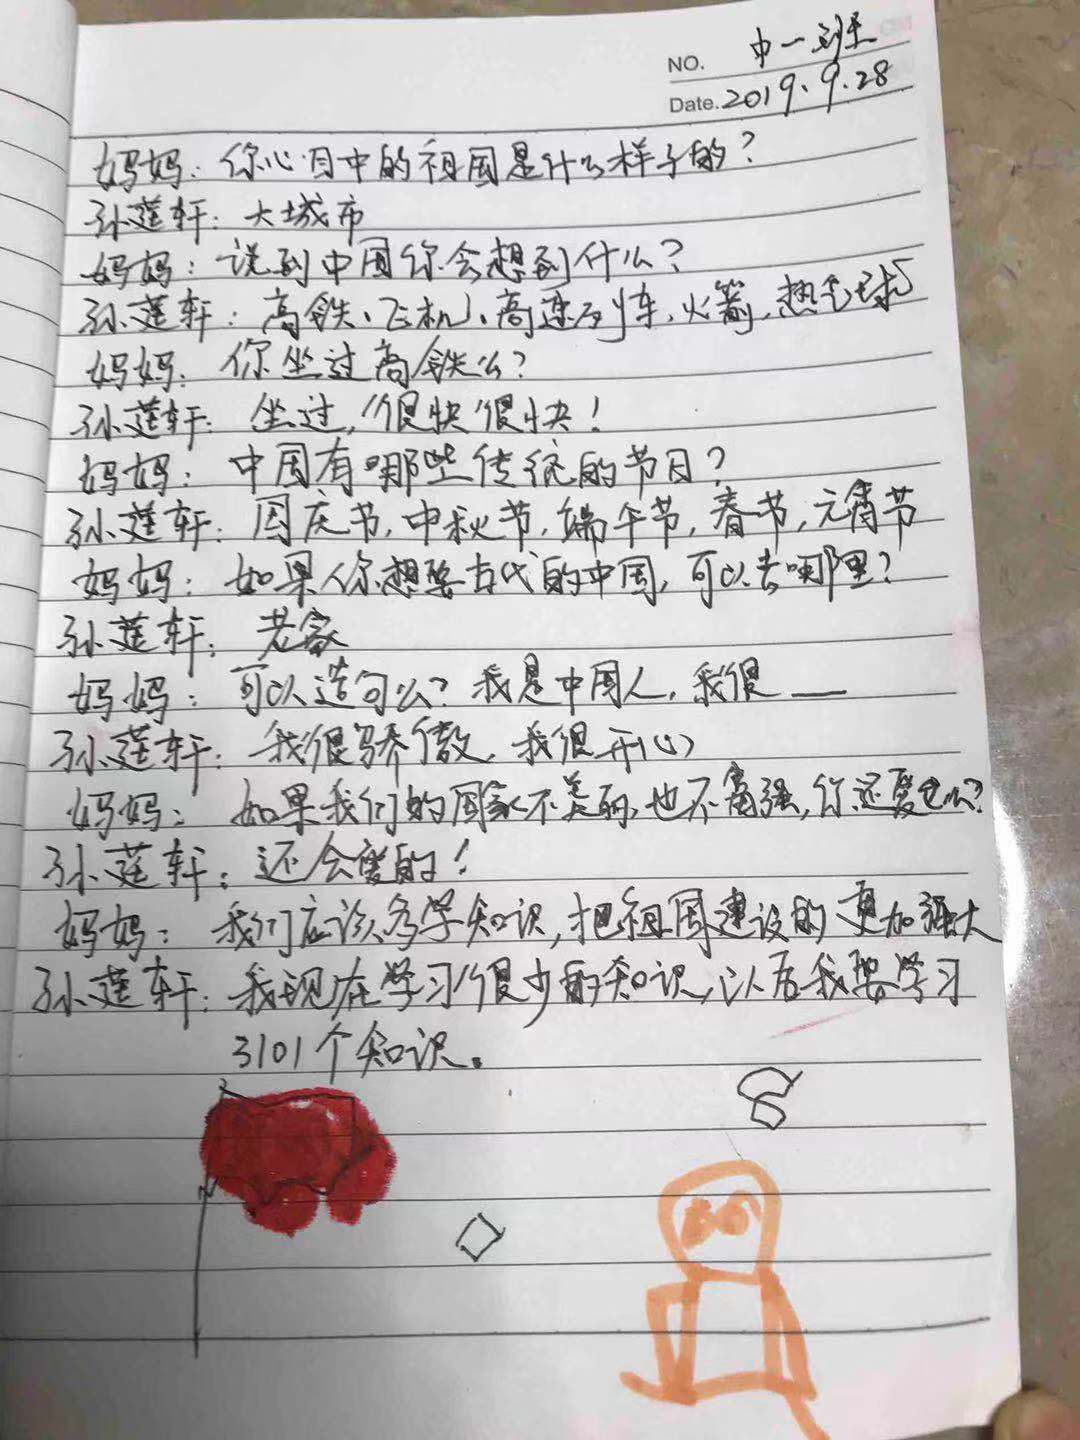 NO. 中一班
Date. 2019.9.28
妈妈：你心目中的祖国是什么样子的？
孙莲轩：大城市
妈妈：说到中国你会想到什么？
孙莲轩：高铁、飞机、高速列车、火箭、热气球
妈妈：你坐过高铁么？
孙莲轩：坐过，很快很快！
妈妈：中国有哪些传统的节日？
孙莲轩：国庆节，中秋节，端午节，春节，元宵节
妈妈：如果你想要古代的中国，可以去哪里？
孙莲轩：老家
妈妈：可以造句么？我是中国人，我很 ——
孙莲轩：我很骄傲，我很开心
妈妈：如果我们的国家不美丽，也不富强，你还爱它么？
孙莲轩：还会爱的！
妈妈：我们应该多学知识，把祖国建设的更加强大
孙莲轩：我现在学习很少的知识，以后我要学习
3101个知识。